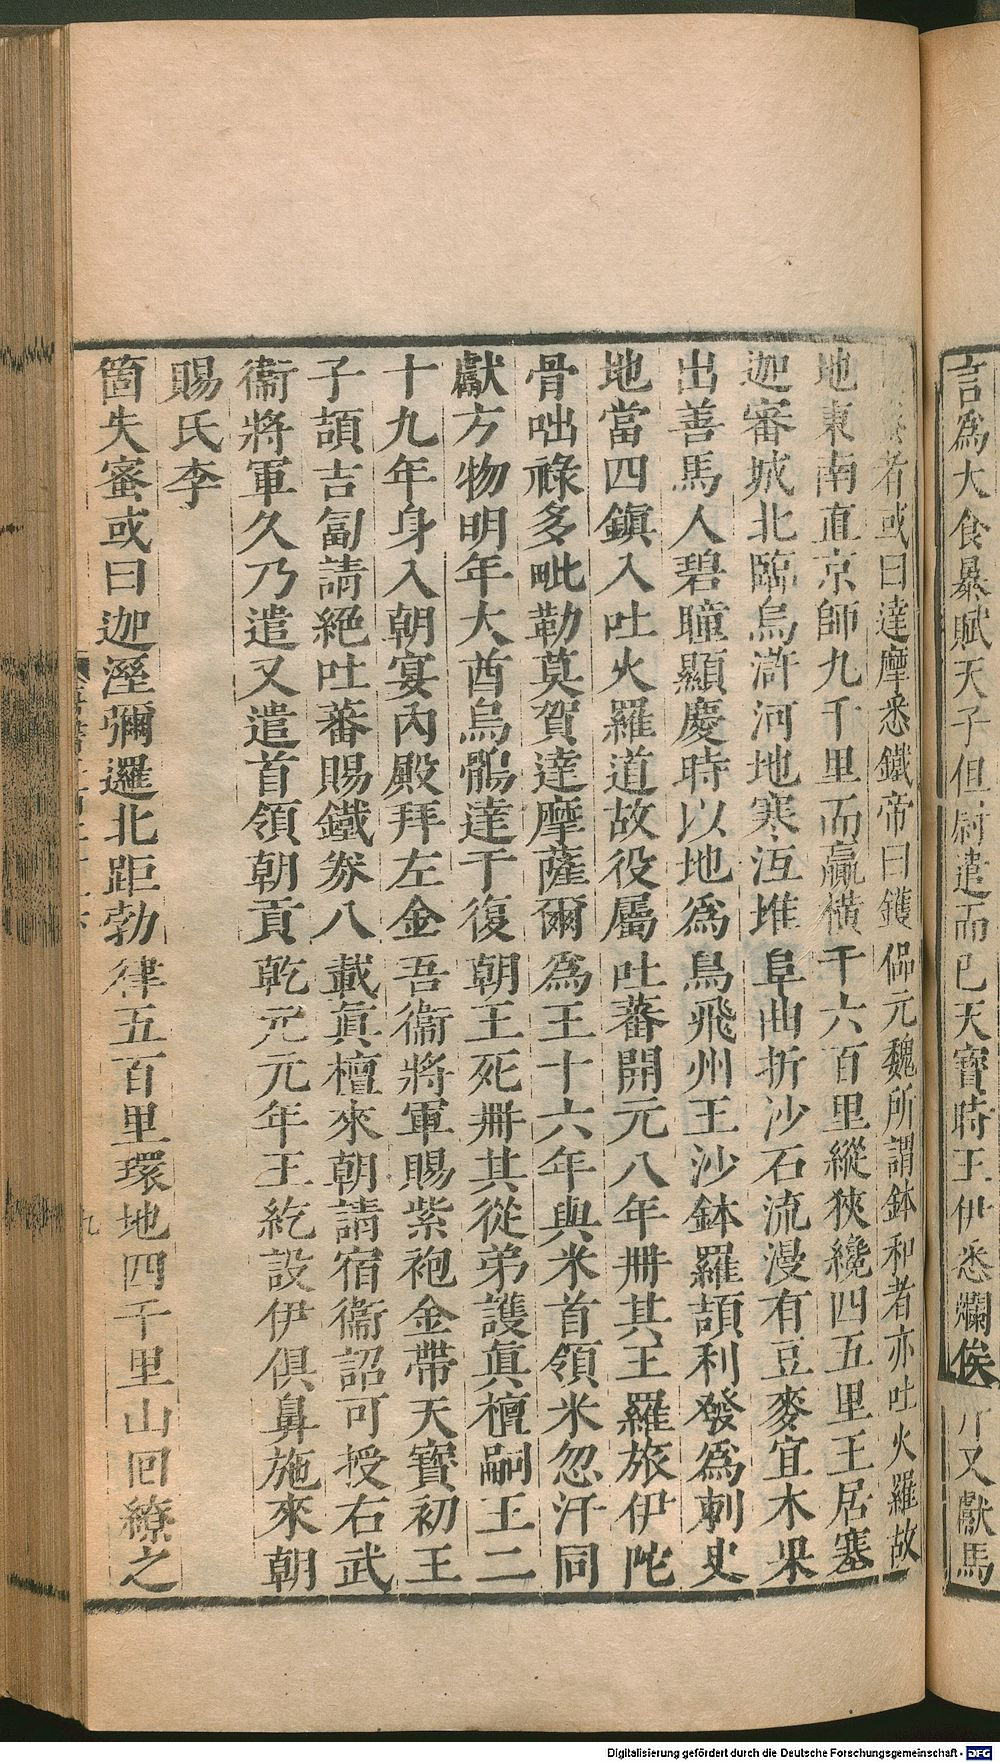 言爲大食暴賦天子但尉遣而已天寶時王伊悉爛俟
斤又獻馬
者或曰達摩悉鐵帝曰鑊偘元魏所謂鉢和者亦吐火羅故
地東南直京師九千里而贏橫千六百里縱狹纔四五里王居塞
迦審城北臨烏滸河地寒沍堆阜曲折沙石流漫有豆麥宜木果
出善馬人碧瞳顯慶時以地爲鳥飛州王沙鉢羅頡利發爲刺史
地當四鎮入吐火羅道故役屬吐蕃開元八年冊其王羅旅伊陀
骨咄祿多毗勒莫賀達摩薩爾爲王十六年與米首領米忽汗同
獻方物明年大酋烏鶻達干復朝王死冊其從弟護眞檀嗣王二
十九年身入朝宴內殿拜左金吾衞將軍賜紫袍金帶天寶初王
子頡吉匐請絕吐蕃賜鐵券八載眞檀來朝請宿衞詔可授右武
衞將軍久乃遣又遣首領朝貢乾元元年王紇設伊俱鼻施來朝
賜氏李
箇失蜜或曰迦溼彌邏北距勃律五百里環地四千里山回繚之
九
Digitalisierung gefördert durch die Deutsche Forschungsgemeinschaft - DFG